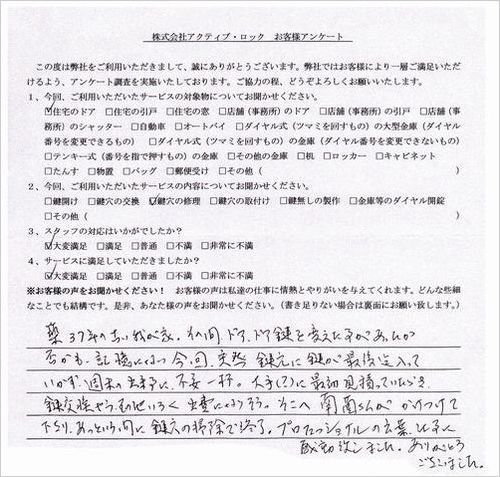 株式会社アクティブ・ロック お客様アンケート
この度は弊社をご利用いただきまして、誠にありがとうございます。弊社ではお客様により一層ご満足いただ
けるよう、アンケート調査を実施いたしております。ご協力の程、どうぞよろしくお願いいたします。
1、今回、ご利用いただいたサービスの対象物についてお聞かせください。
☑住宅のドア □住宅の引戸 □住宅の窓 □店舗(事務所)のドア □店舗(事務所)の引戸 □店舗(事
務所)のシャッター □自動車 □オートバイ □ダイヤル式(ツマミを回すもの)の大型金庫(ダイヤル
番号を変更できるもの) □ダイヤル式(ツマミを回すもの)の金庫(ダイヤル番号を変更できないもの)
□テンキー式(番号を指で押すもの)の金庫 □その他の金庫 □机 □ロッカー □キャビネット
□たんす □物置 □バッグ □郵便受け □その他( )
2、今回、ご利用いただいたサービスの内容についてお聞かせください。
□鍵開け □鍵穴の交換 ☑鍵穴の修理 □鍵穴の取付け □鍵無しの製作 □金庫等のダイヤル開錠
□その他( )
3、スタッフの対応はいかがでしたか?
☑大変満足 □満足 □普通 □不満 □非常に不満
4、サービスに満足していただきましたか?
☑大変満足 □満足 □普通 □不満 □非常に不満
※お客様の声をお聞かせください! お客様の声は私達の仕事に情熱とやりがいを与えてくれます。どんな些細
なことでも結構です。是非、あなた様の声をお聞かせください。(書き足りない場合は裏面にお願い致します。)
築37年の古い我が家。その間、ドア、ドア鍵を変えた事があったか
否かも、記憶になく 今回、突然 鍵元に鍵が最後迄入って
いかず、週末の出来事に、不安一杯。大手(?)に最初見積っていただき
鍵交換やら、その他いろいろ 出費になりそう。そこへ 南面さんが かけつけて
下さり、あっという間に 鍵穴の掃除で終了。プロフェッショナルの言葉、仕事に
感動致しました。ありがとう
ございました。